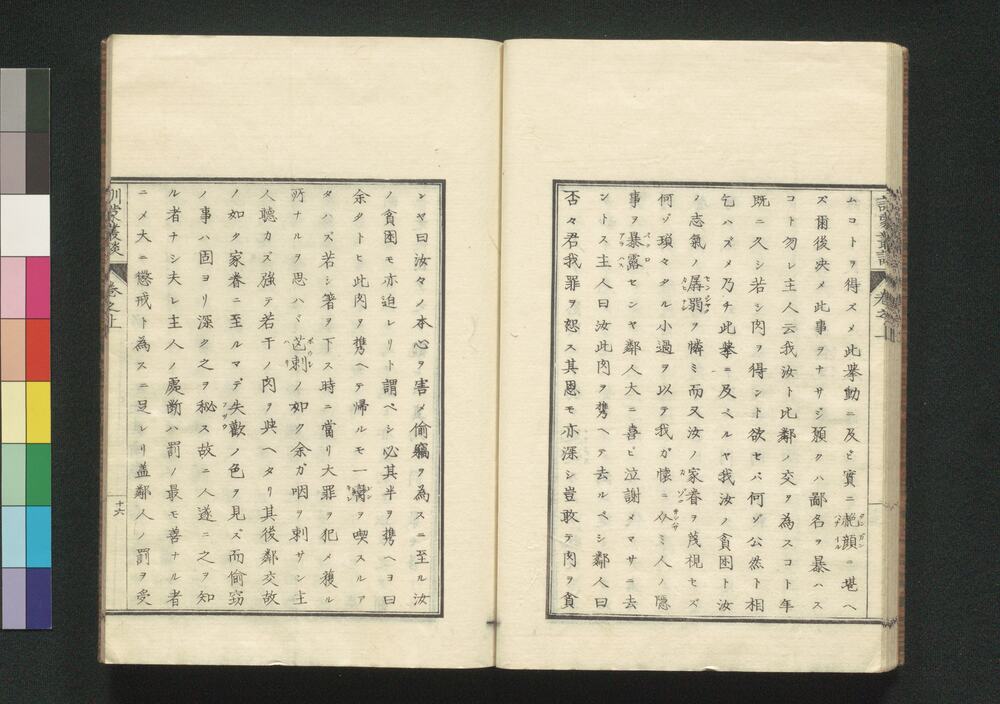 ムコトヲ得ズメ此挙動ニ及ビ實ニ靦顔ニ堪ヘ
ズ爾後决メ此事ヲナサジ願クハ鄙名ヲ暴ハス
コト勿レ主人云我汝ト比鄰ノ交ヲ為スコト年
既ニ久シ若シ肉ヲ得ント欲セバ何ゾ公然ト相
乞ハズメ乃チ此挙ニ及ベルヤ我汝ノ貧困ト汝
ノ志氣ノ孱弱ヲ憐ミ而又汝ノ家眷ヲ蔑視セズ
何ゾ瑣々タル小過ヲ以テ我ガ懐ニ介ミ人ノ隠
事ヲ暴露センヤ鄰人大ニ喜ビ泣謝メマサニ去
ントス主人曰汝此肉ヲ携ヘテ去ルベシ鄰人曰
否々君我罪ヲ恕ス其恩モ亦深シ豈敢テ肉ヲ貪
ンヤ曰汝々ノ本心ヲ害メ偷竊ヲ為スニ至ル汝
ノ貧困モ亦迫レリト謂ベシ必其半ヲ携ヘヨ曰
余タトヒ此肉ヲ携ヘテ帰ルモ一臠ヲ喫スルア
タハズ若シ箸ヲ下ス時ニ當リ大罪ヲ犯メ獲ル
所ナルヲ思ハヾ芒刺ノ如ク余ガ咽ヲ刺サン主
人聴カズ強テ若干ノ肉ヲ與ヘタリ其後鄰交故
ノ如ク家眷ニ至ルマデ失歡ノ色ヲ見ズ而偷窃
ノ事ハ固ヨリ深ク之ヲ秘ス故ニ人遂ニ之ヲ知
ル者ナシ夫レ主人ノ處断ハ罰ノ最モ善ナル者
ニメ大ニ懲戒ト為スニ足レリ盖鄰人ノ罰ヲ受
訓蒙叢談 巻之上 十六